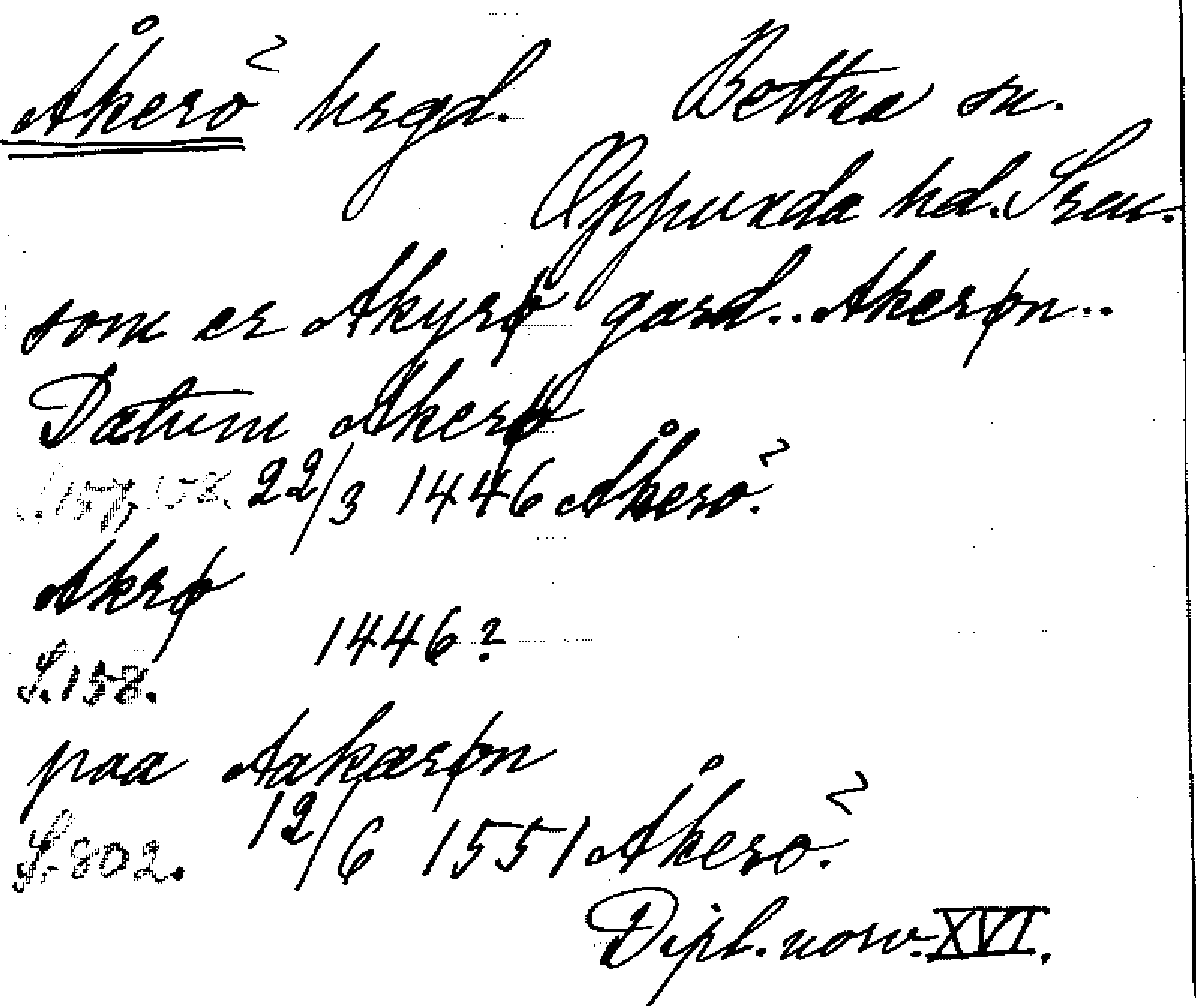 Åkerö hrgd. Bettna sn.
Oppunda hd. Srml.
som er Akyrø gard.. Akerøn..
Datum Akerø
S. 157, 158. 22/3 1446 Åkerö.
Akrø
1446?
S. 158.
paa Aakærøn
S. 802. 12/6 1551 Åkerö.
Dipl. norv. XVI.